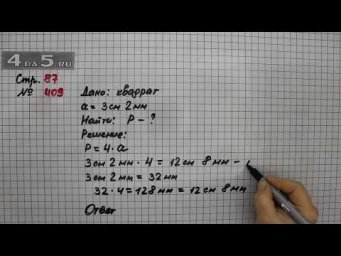 4DA5.RU
Стр. 87
№ 409
Дано: квадрат
a = 3см 2мм
Найти: P - ?
Решение:
P = 4 · a
3см 2мм · 4 = 12см 8мм -
3см 2мм = 32мм
32 · 4 = 128мм = 12см 8мм
Ответ